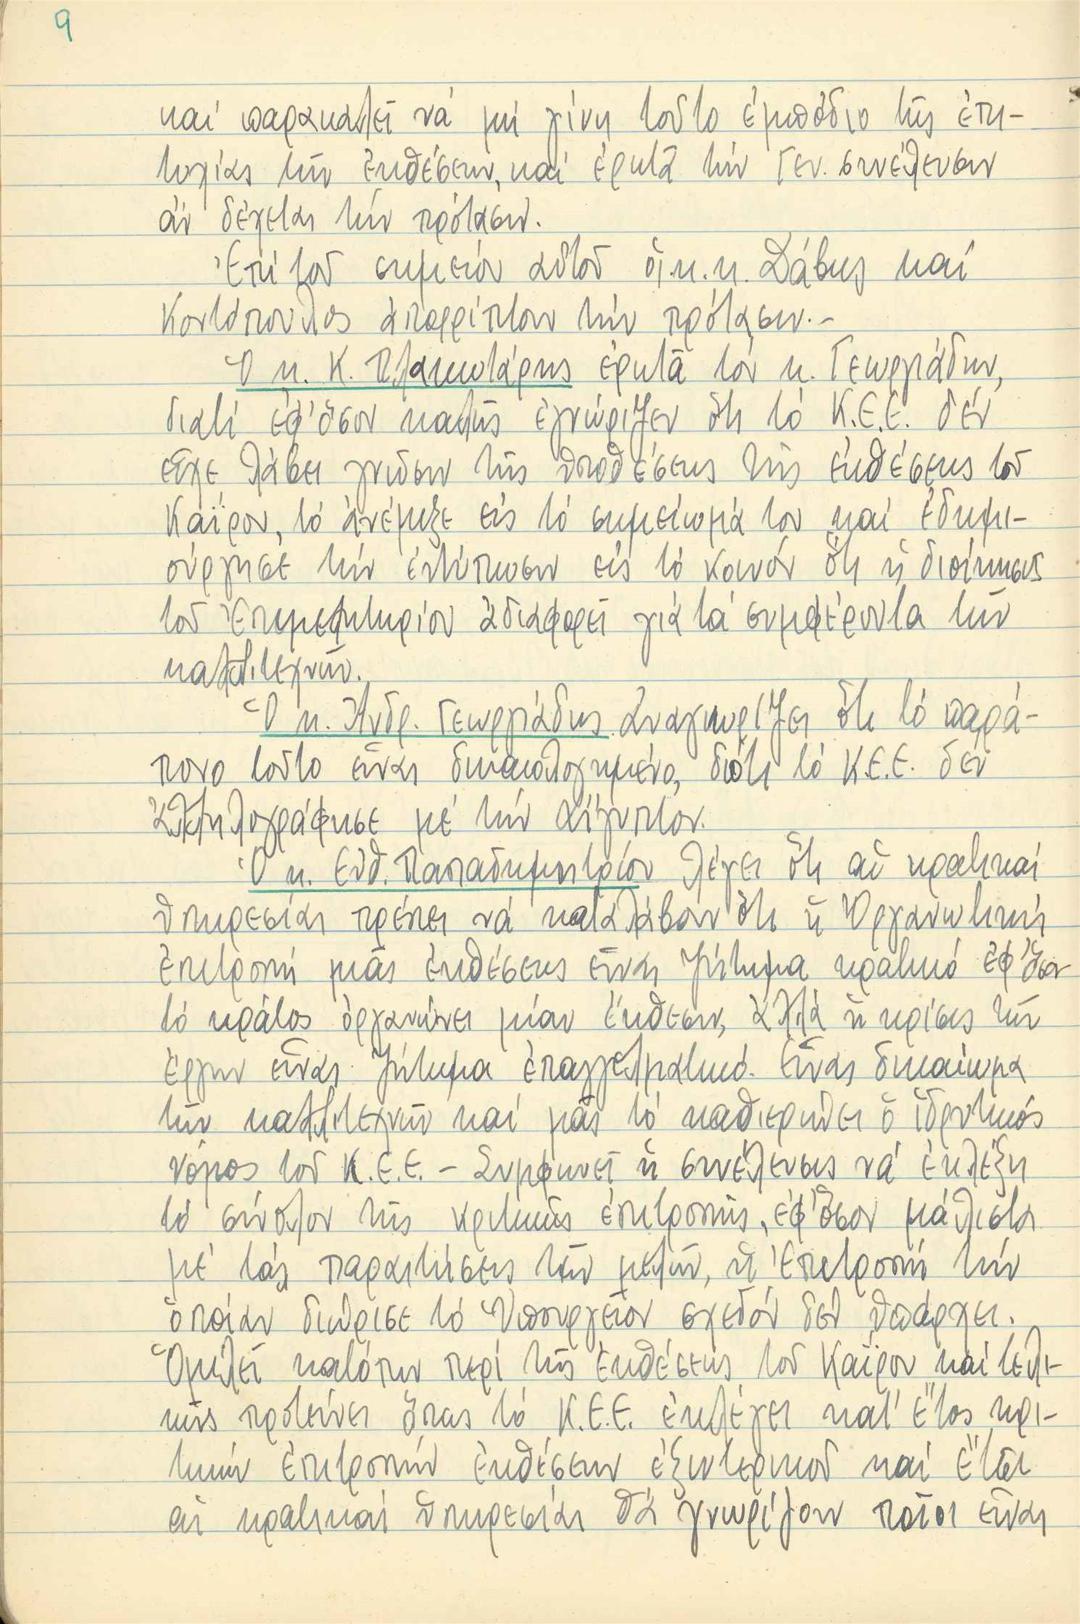 9
καί παρακαλεῖ νά μή γίνη τοῦτο ἐμπόδιο τῆς ἐπι-
τυχίας τῶν ἐκθέσεων, καί ἐρωτᾶ τήν Γεν. συνέλευσιν
ἄν δέχεται τήν πρότασιν.
Ἐπί τοῦ σημείου αὐτοῦ οἱ κ.κ. Σάβης καί
Κοντόπουλος ἀπορρίπτουν τήν πρότασιν.-
Ὁ κ. Κ. Πλακωτάρης ἐρωτᾶ τόν κ. Γεωργιάδην,
διατί ἐφ' ὅσον καλῶς ἐγνώριζεν ὅτι τό Κ.Ε.Ε. δέν
εἶχε λάβει γνῶσιν τῆς ὑποθέσεως τῆς ἐκθέσεως τοῦ
Καΐρου, τό ἀνέμιξε εἰς τό σημείωμά του καί ἐδημι-
ούργησε τήν ἐντύπωσιν εἰς τό κοινόν ὅτι ἡ διοίκησις
τοῦ Ἐπιμελητηρίου ἀδιαφορεῖ γιά τά συμφέροντα τῶν
καλλιτεχνῶν.
Ὁ κ. Ἀνδρ. Γεωργιάδης ἀναγνωρίζει ὅτι τό παρά-
πονο τοῦτο εἶναι δικαιολογημένο, διότι τό Κ.Ε.Ε. δέν
ἀλληλογράφησε μέ τήν Αἴγυπτον.
Ὁ κ. Εὐθ. Παπαδημητρίου λέγει ὅτι αἱ κρατικαί
ὑπηρεσίαι πρέπει νά καταλάβουν ὅτι ἡ Ὀργανωτική
ἐπιτροπή μιᾶς ἐκθέσεως εἶναι ζήτημα κρατικό ἐφ' ὅσον
τό κράτος ὀργανώνει μίαν ἔκθεσιν, ἀλλά ἡ κρίσις τῶν
ἔργων εἶναι ζήτημα ἐπαγγελματικό. Εἶναι δικαίωμα
τῶν καλλιτεχνῶν καί μᾶς τό καθιερώνει ὁ ἱδρυτικός
νόμος τοῦ Κ.Ε.Ε. - Συμφωνεῖ ἡ συνέλευσις νά ἐκλέξη
τό σύνολον τῆς κριτικῆς ἐπιτροπῆς, ἐφ' ὅσον μάλιστα
μέ τάς παραιτήσεις τῶν μελῶν, ἡ Ἐπιτροπή τήν
ὁποίαν διώρισε τό Ὑπουργεῖον σχεδόν δέν ὑπάρχει.
Ὁμιλεῖ κατόπιν περί τῆς ἐκθέσεως τοῦ Καΐρου καί τελι-
κῶς προτείνει ὅπως τό Κ.Ε.Ε. ἐκλέγει κατ' ἔτος κρι-
τικήν ἐπιτροπήν ἐκθέσεων ἐξωτερικοῦ καί ἔτσι
αἱ κρατικαί ὑπηρεσίαι θά γνωρίζουν ποῖοι εἶναι